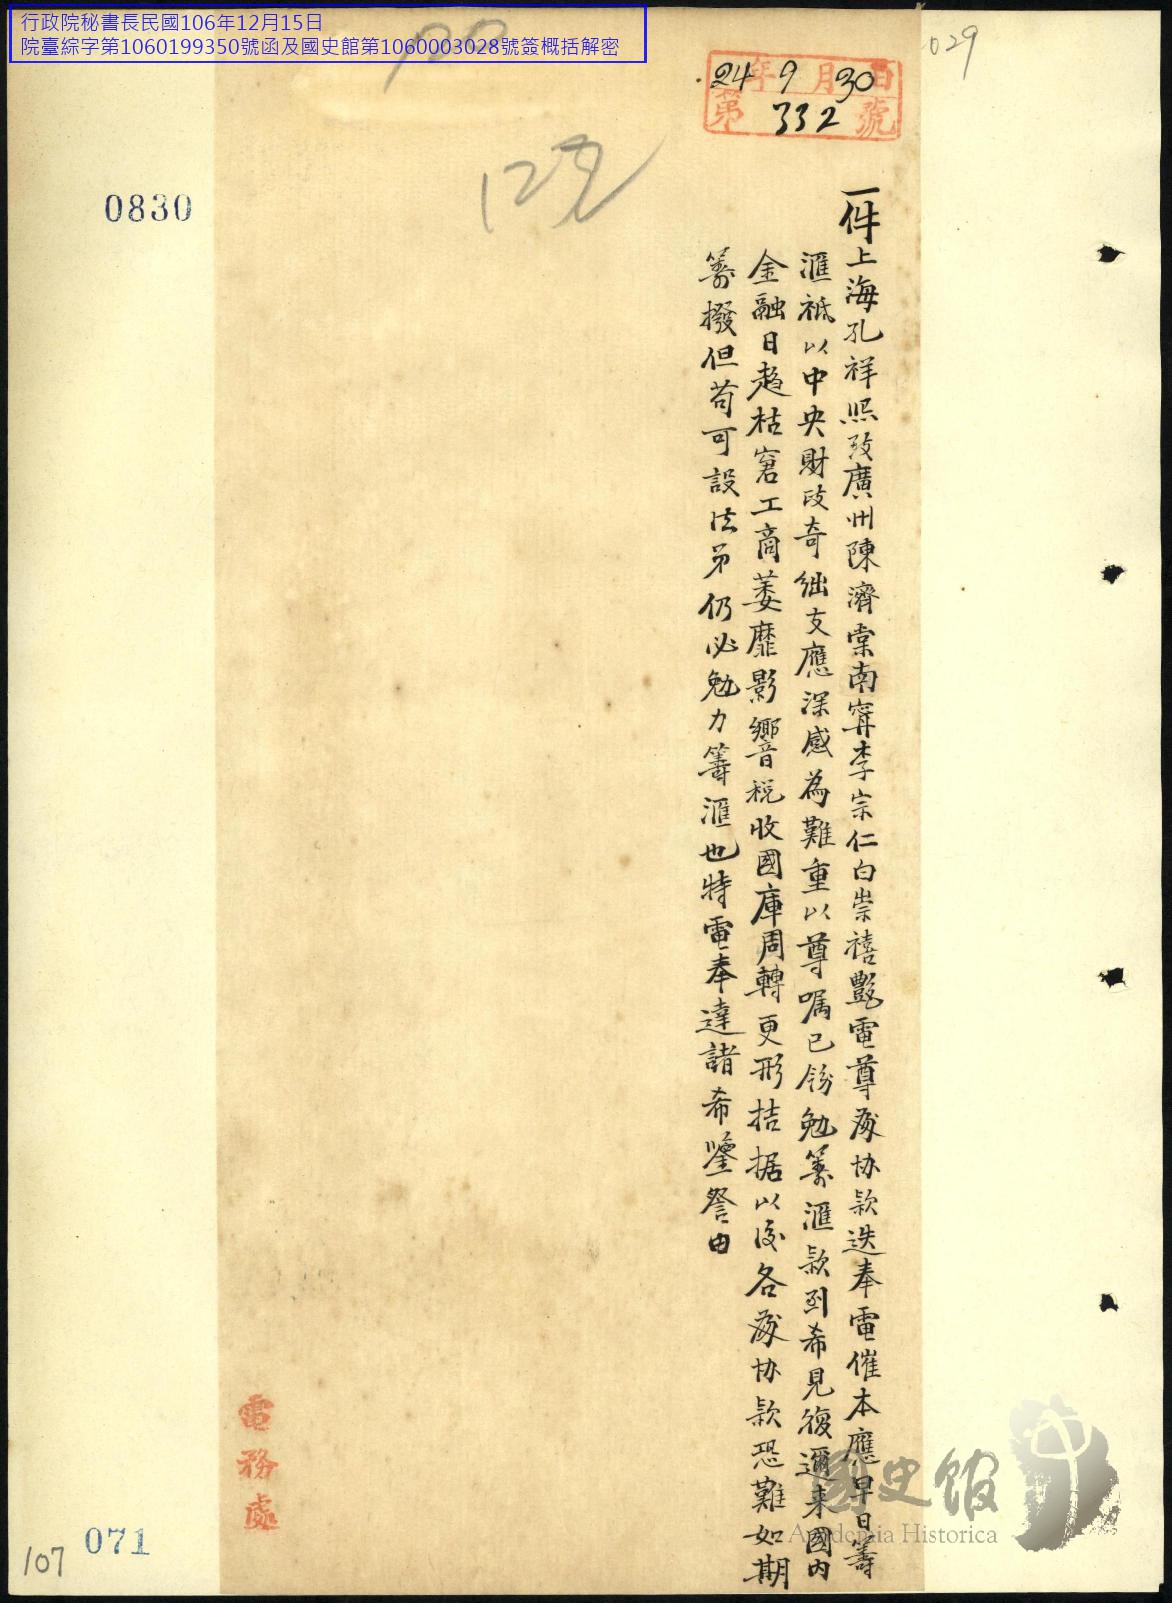 行政院秘書長民國106年12月15日
院臺綜字第1060199350號函及國史館第1060003028號簽概括解密
029
24年9月30日
第332號
0830
一件上海孔祥熙致廣州陳濟棠南寧李宗仁白崇禧艷電尊處協款迭奉電催本應早日籌
滙祇以中央財政奇絀支應深感為難重以尊囑已飭勉籌滙款到希見復邇來國內
金融日趨枯窘工商萎靡影響稅收國庫周轉更形拮据以後各處協款恐難如期
籌撥但苟可設法弟仍必勉力籌滙也特電奉達諸希鑒詧由
電務處
國史館
Academia Historica
071
107